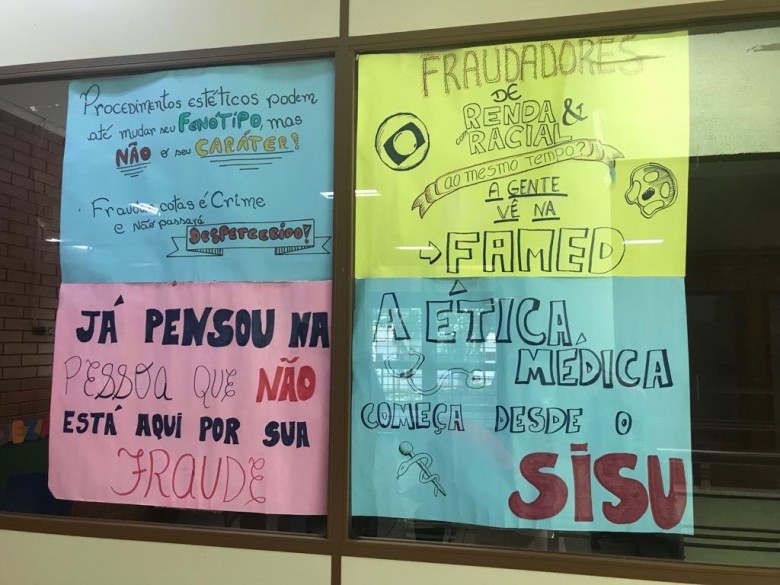 Procedimentos estéticos podem
até mudar seu FENÓTIPO, mas
NÃO o seu CARÁTER!
• Fraudar cotas é Crime
e não passará
DESPERCEBIDO!
FRAUDADORES
DE
RENDA &
com RACIAL
ao mesmo tempo?
A GENTE
VÊ NA
→ FAMED
JÁ PENSOU NA
PESSOA QUE NÃO
ESTÁ AQUI POR SUA
FRAUDE
A ÉTICA
MÉDICA
COMEÇA DESDE O
SISU